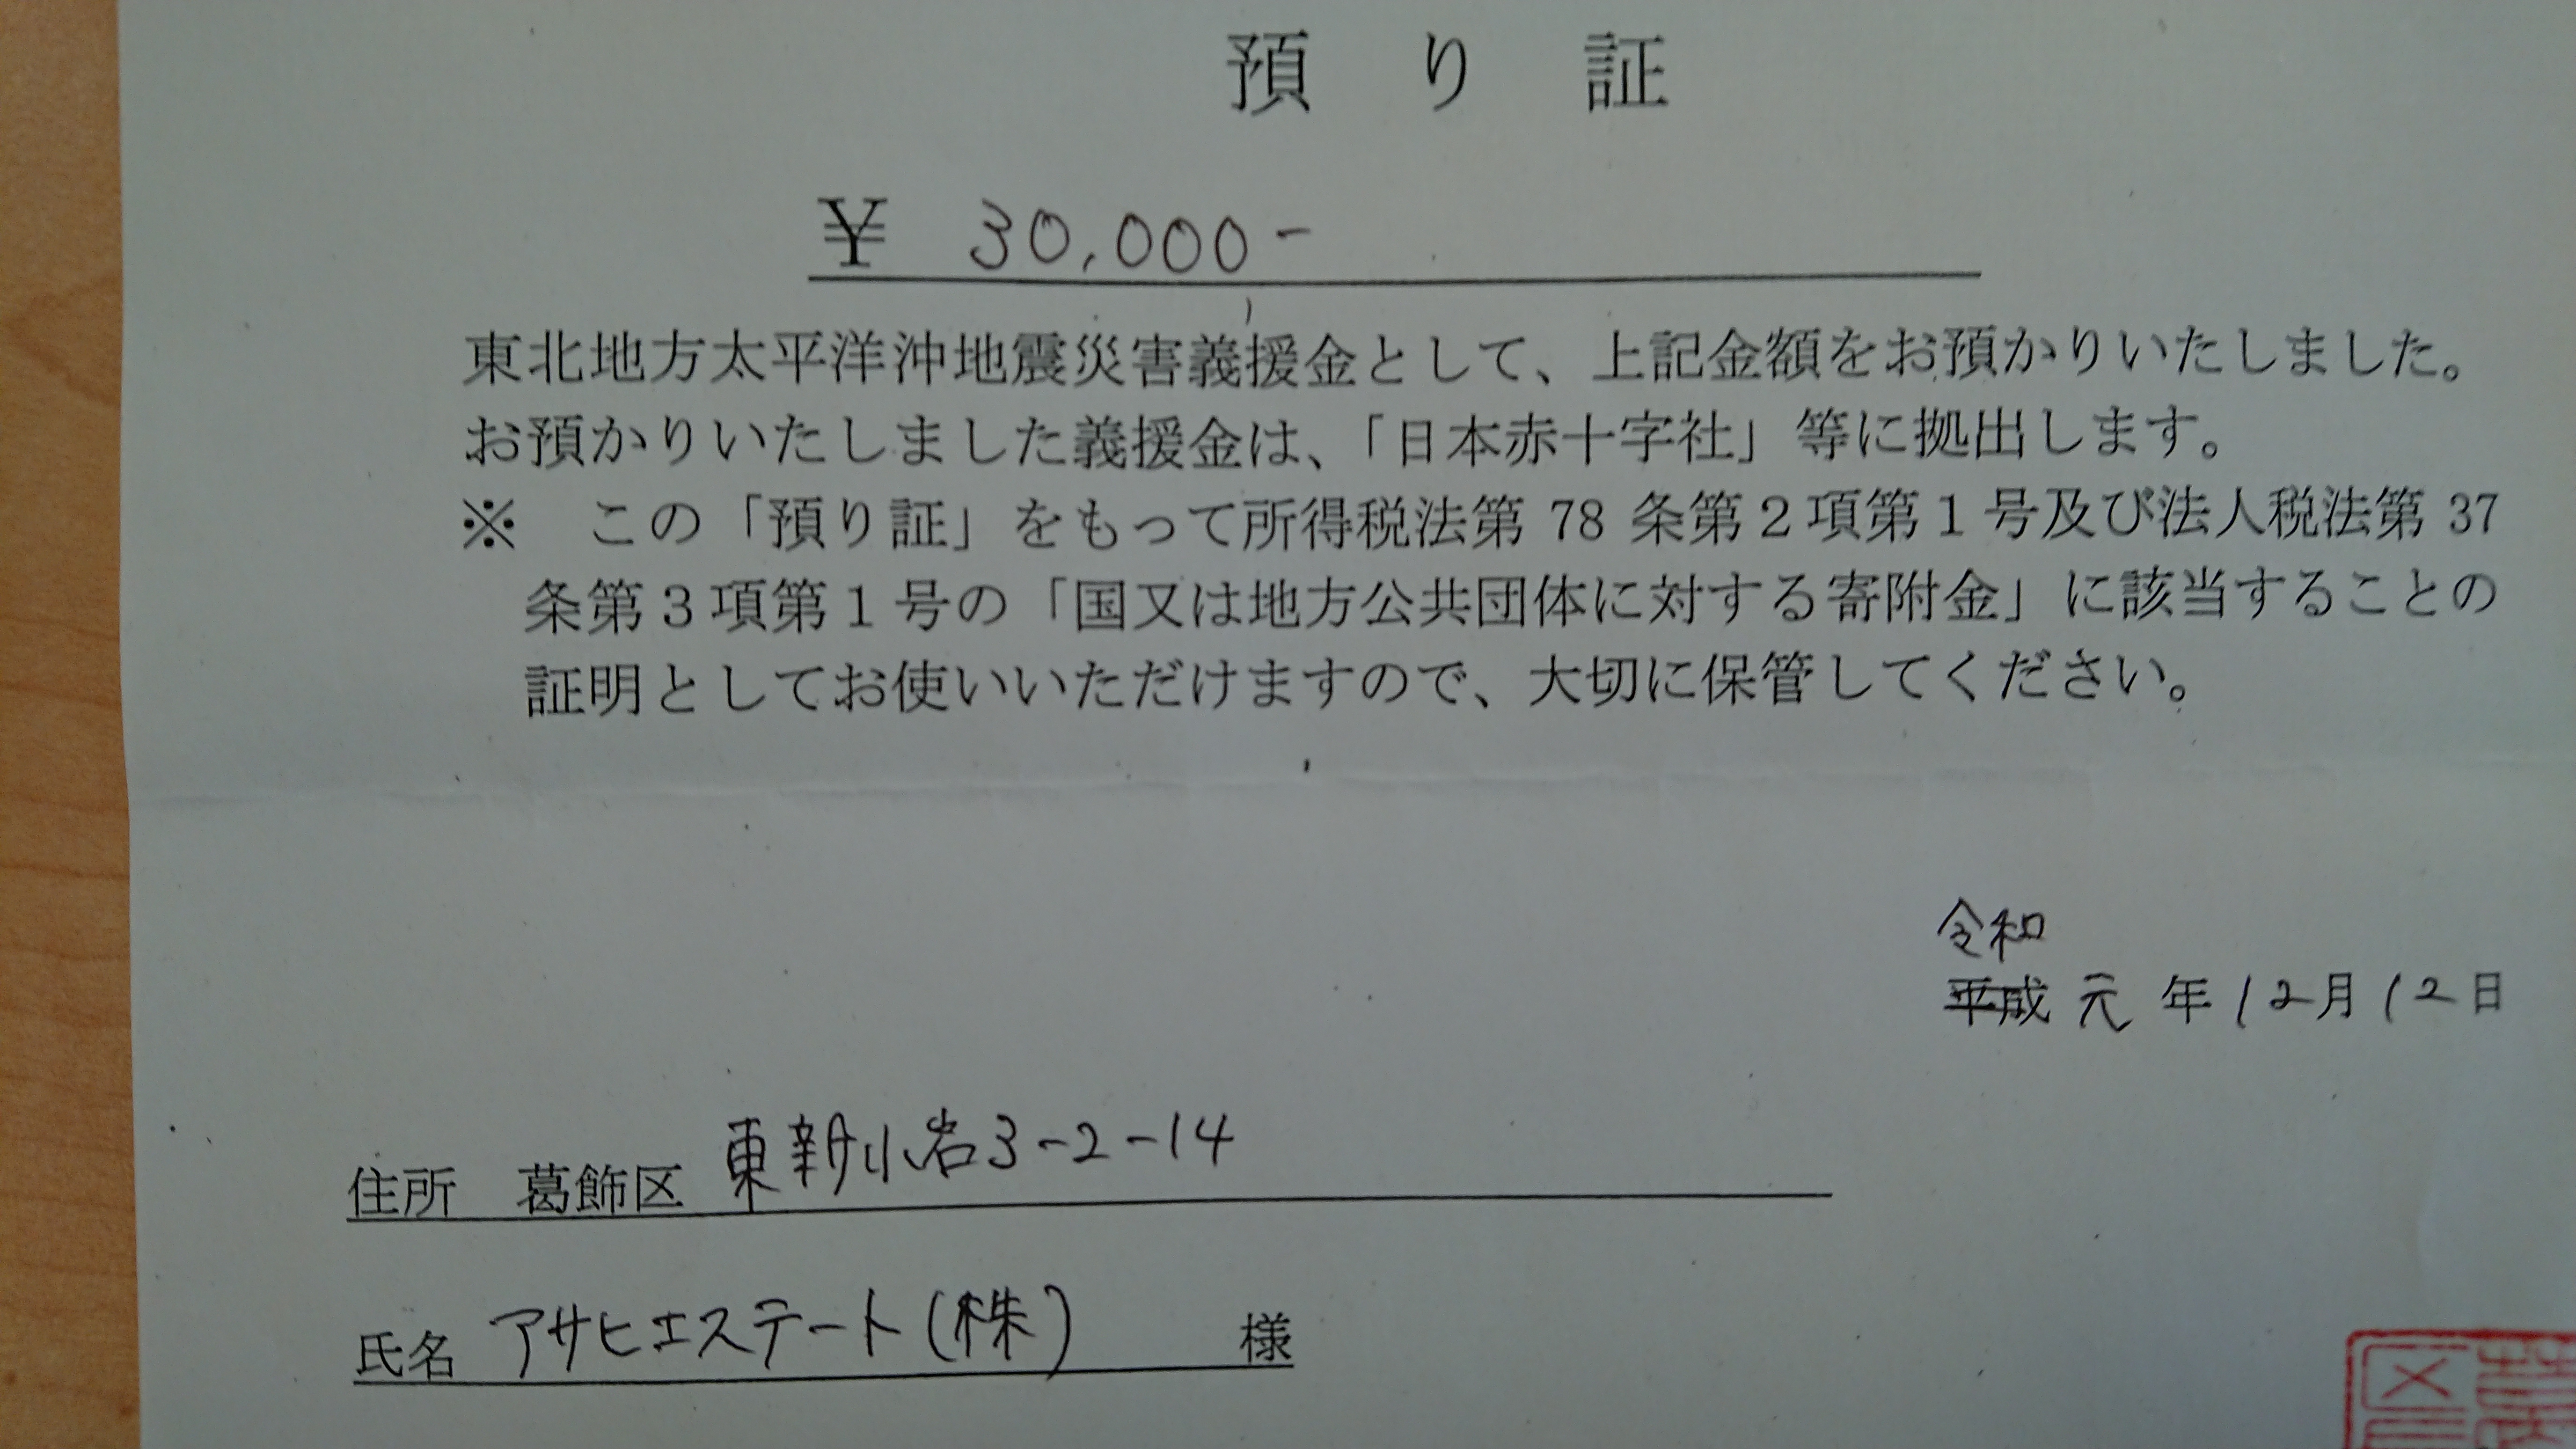 預り証
¥ 30,000-
東北地方太平洋沖地震災害義援金として、上記金額をお預かりいたしました。
お預かりいたしました義援金は、「日本赤十字社」等に拠出します。
※ この「預り証」をもって所得税法第 78 条第2項第1号及び法人税法第 37
条第3項第1号の「国又は地方公共団体に対する寄附金」に該当することの
証明としてお使いいただけますので、大切に保管してください。
令和
平成 元 年 12月 12日
住所 葛飾区 東新小岩3-2-14
氏名 アサヒエステート(株) 様